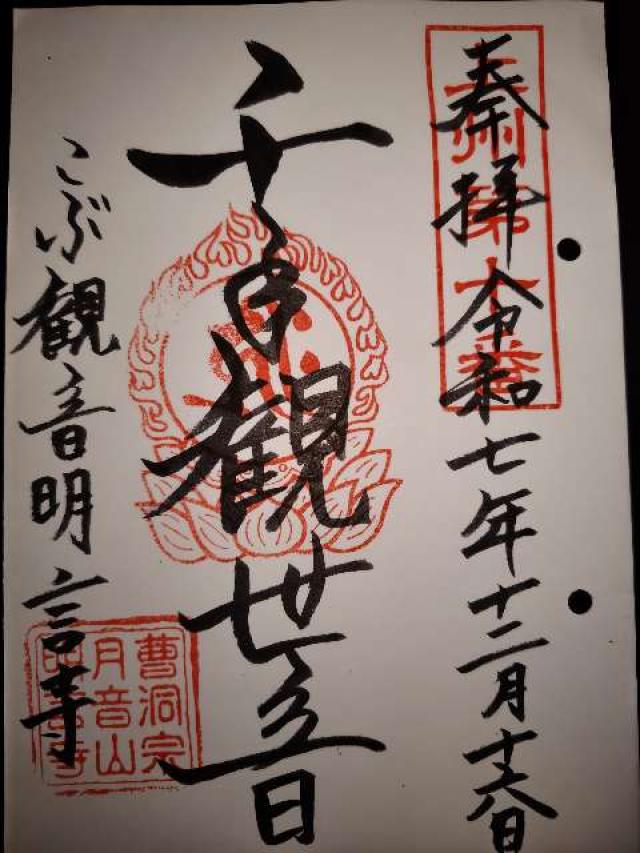 奉拝 令和七年十二月十六日
千手観世音
こぶ観音明言寺
曹洞宗
月音山
明言寺